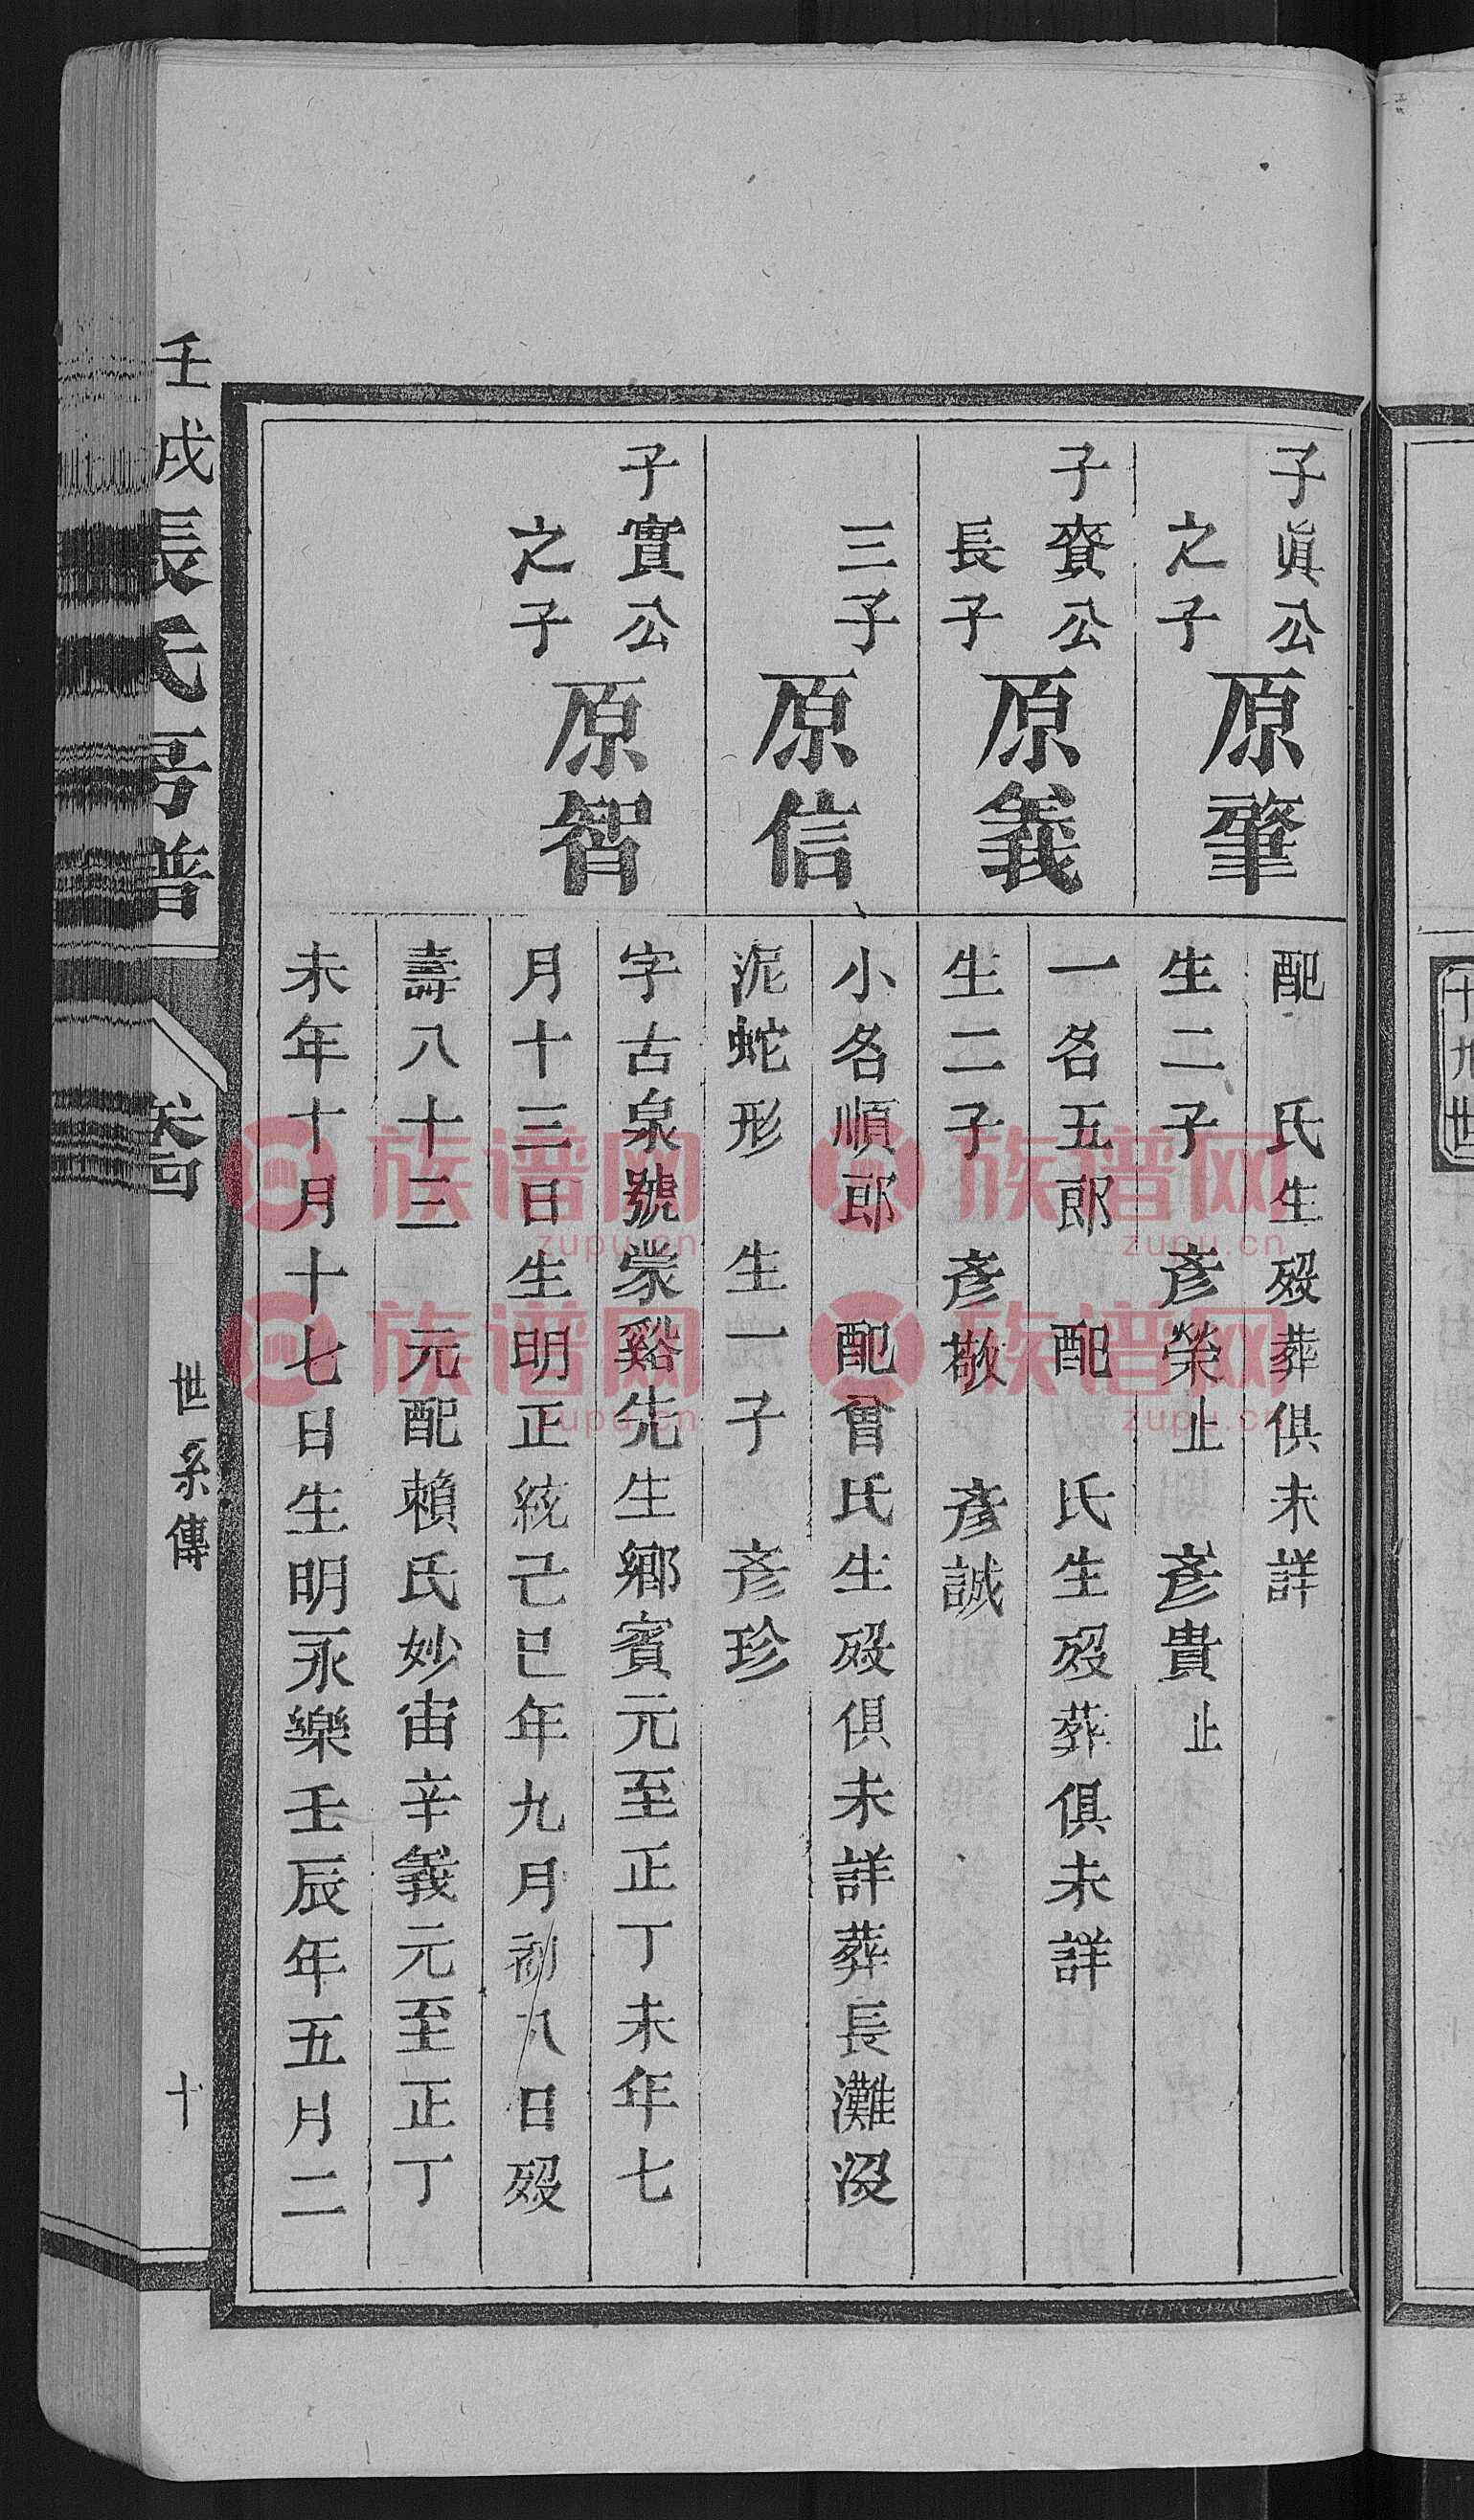 子眞公
之子
原肇
配 氏生歿葬俱未詳
生二子 彥榮止 彥貴止
子賚公
長子
原義
一名五郎 配 氏生歿葬俱未詳
生二子 彥敬 彥誠
三子
原信
小名順郎 配曾氏生歿俱未詳葬長灘沒
泥蛇形 生一子 彥珍
子實公
之子
原智
字古泉號蒙谿先生鄉賓元至正丁未年七
月十三日生明正統己巳年九月初八日歿
壽八十三 元配賴氏妙宙辛義元至正丁
未年十月十七日生明永樂壬辰年五月二
壬戌長氏
普
世系傳
十
十九世
族谱网
zupu.cn
族谱网
zupu.cn
族谱网
zupu.cn
族谱网
zupu.cn